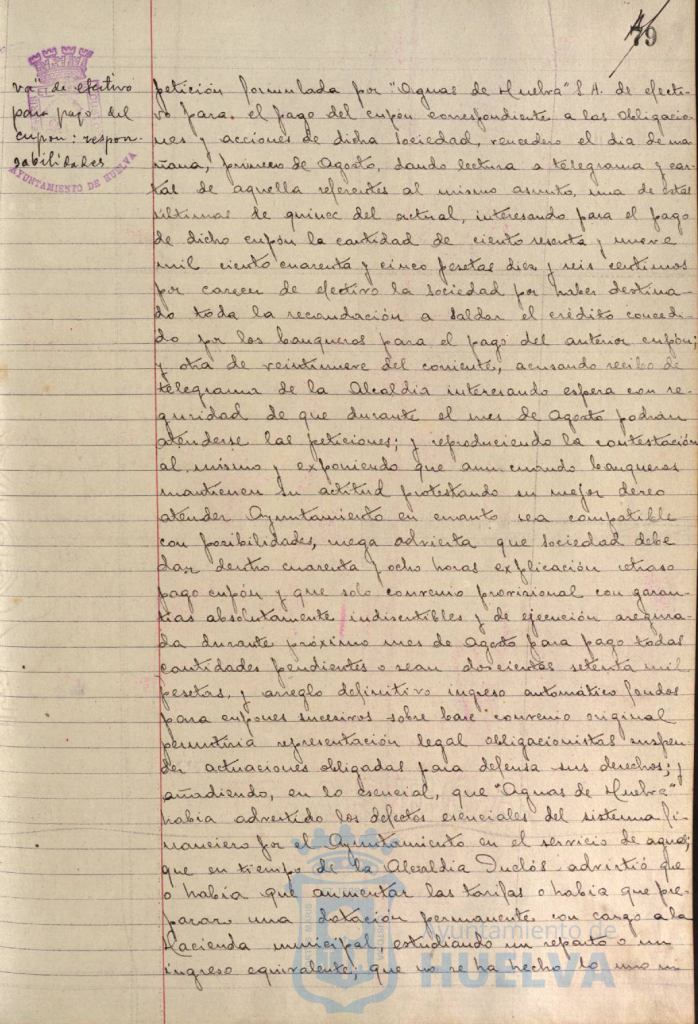 79
va" de efectivo
para pago del
cupón: respon-
sabilidades
AYUNTAMIENTO DE HUELVA
petición formulada por "Aguas de Huelva" S.A. de efecti-
vo para el pago del cupón correspondiente a las obligacio-
nes y acciones de dicha sociedad, vencedero el día de ma-
ñana, primero de Agosto, dando lectura a telegrama y car-
tas de aquella referentes al mismo asunto, una de estas
últimas de quince del actual, interesando para el pago
de dicho cupón la cantidad de ciento sesenta y nueve
mil ciento cuarenta y cinco pesetas diez y seis centimos
por carecer de efectivo la sociedad por haber destina-
do toda la recaudación a saldar el crédito concedi-
do por los banqueros para el pago del anterior cupón;
y otra de veintinueve del corriente, acusando recibo de
telegrama de la Alcaldia interesando espera con se-
guridad de que durante el mes de Agosto podrán
atenderse las peticiones; y reproduciendo la contestación
al mismo y exponiendo que aun cuando banqueros
mantienen su actitud protestando su mejor deseo
atender Ayuntamiento en cuanto sea compatible
con posibilidades, ruega advierta que sociedad debe
dar dentro cuarenta y ocho horas explicación retraso
pago cupón y que solo convenio provisional con garan-
tias absolutamente indiscutibles y de ejecución asegura-
da durante próximo mes de Agosto para pago todas
cantidades pendientes o sean doscientas setenta mil
pesetas, y arreglo definitivo ingreso automático fondos
para cupones sucesivos sobre base convenio original
permitiria representación legal obligacionistas suspen-
der actuaciones obligadas para defensa sus derechos; y
añadiendo, en lo esencial, que "Aguas de Huelva"
había advertido los defectos esenciales del sistema fi-
nanciero por el Ayuntamiento en el servicio de aguas;
que en tiempo de la Alcaldia Duclós advirtió que
o había que aumentar las tarifas o había que pre-
parar una dotación permanente con cargo a la
Hacienda municipal, estudiando un reparto o un
ingreso equivalente; que no se ha hecho lo uno ni
Ayuntamiento de
HUELVA